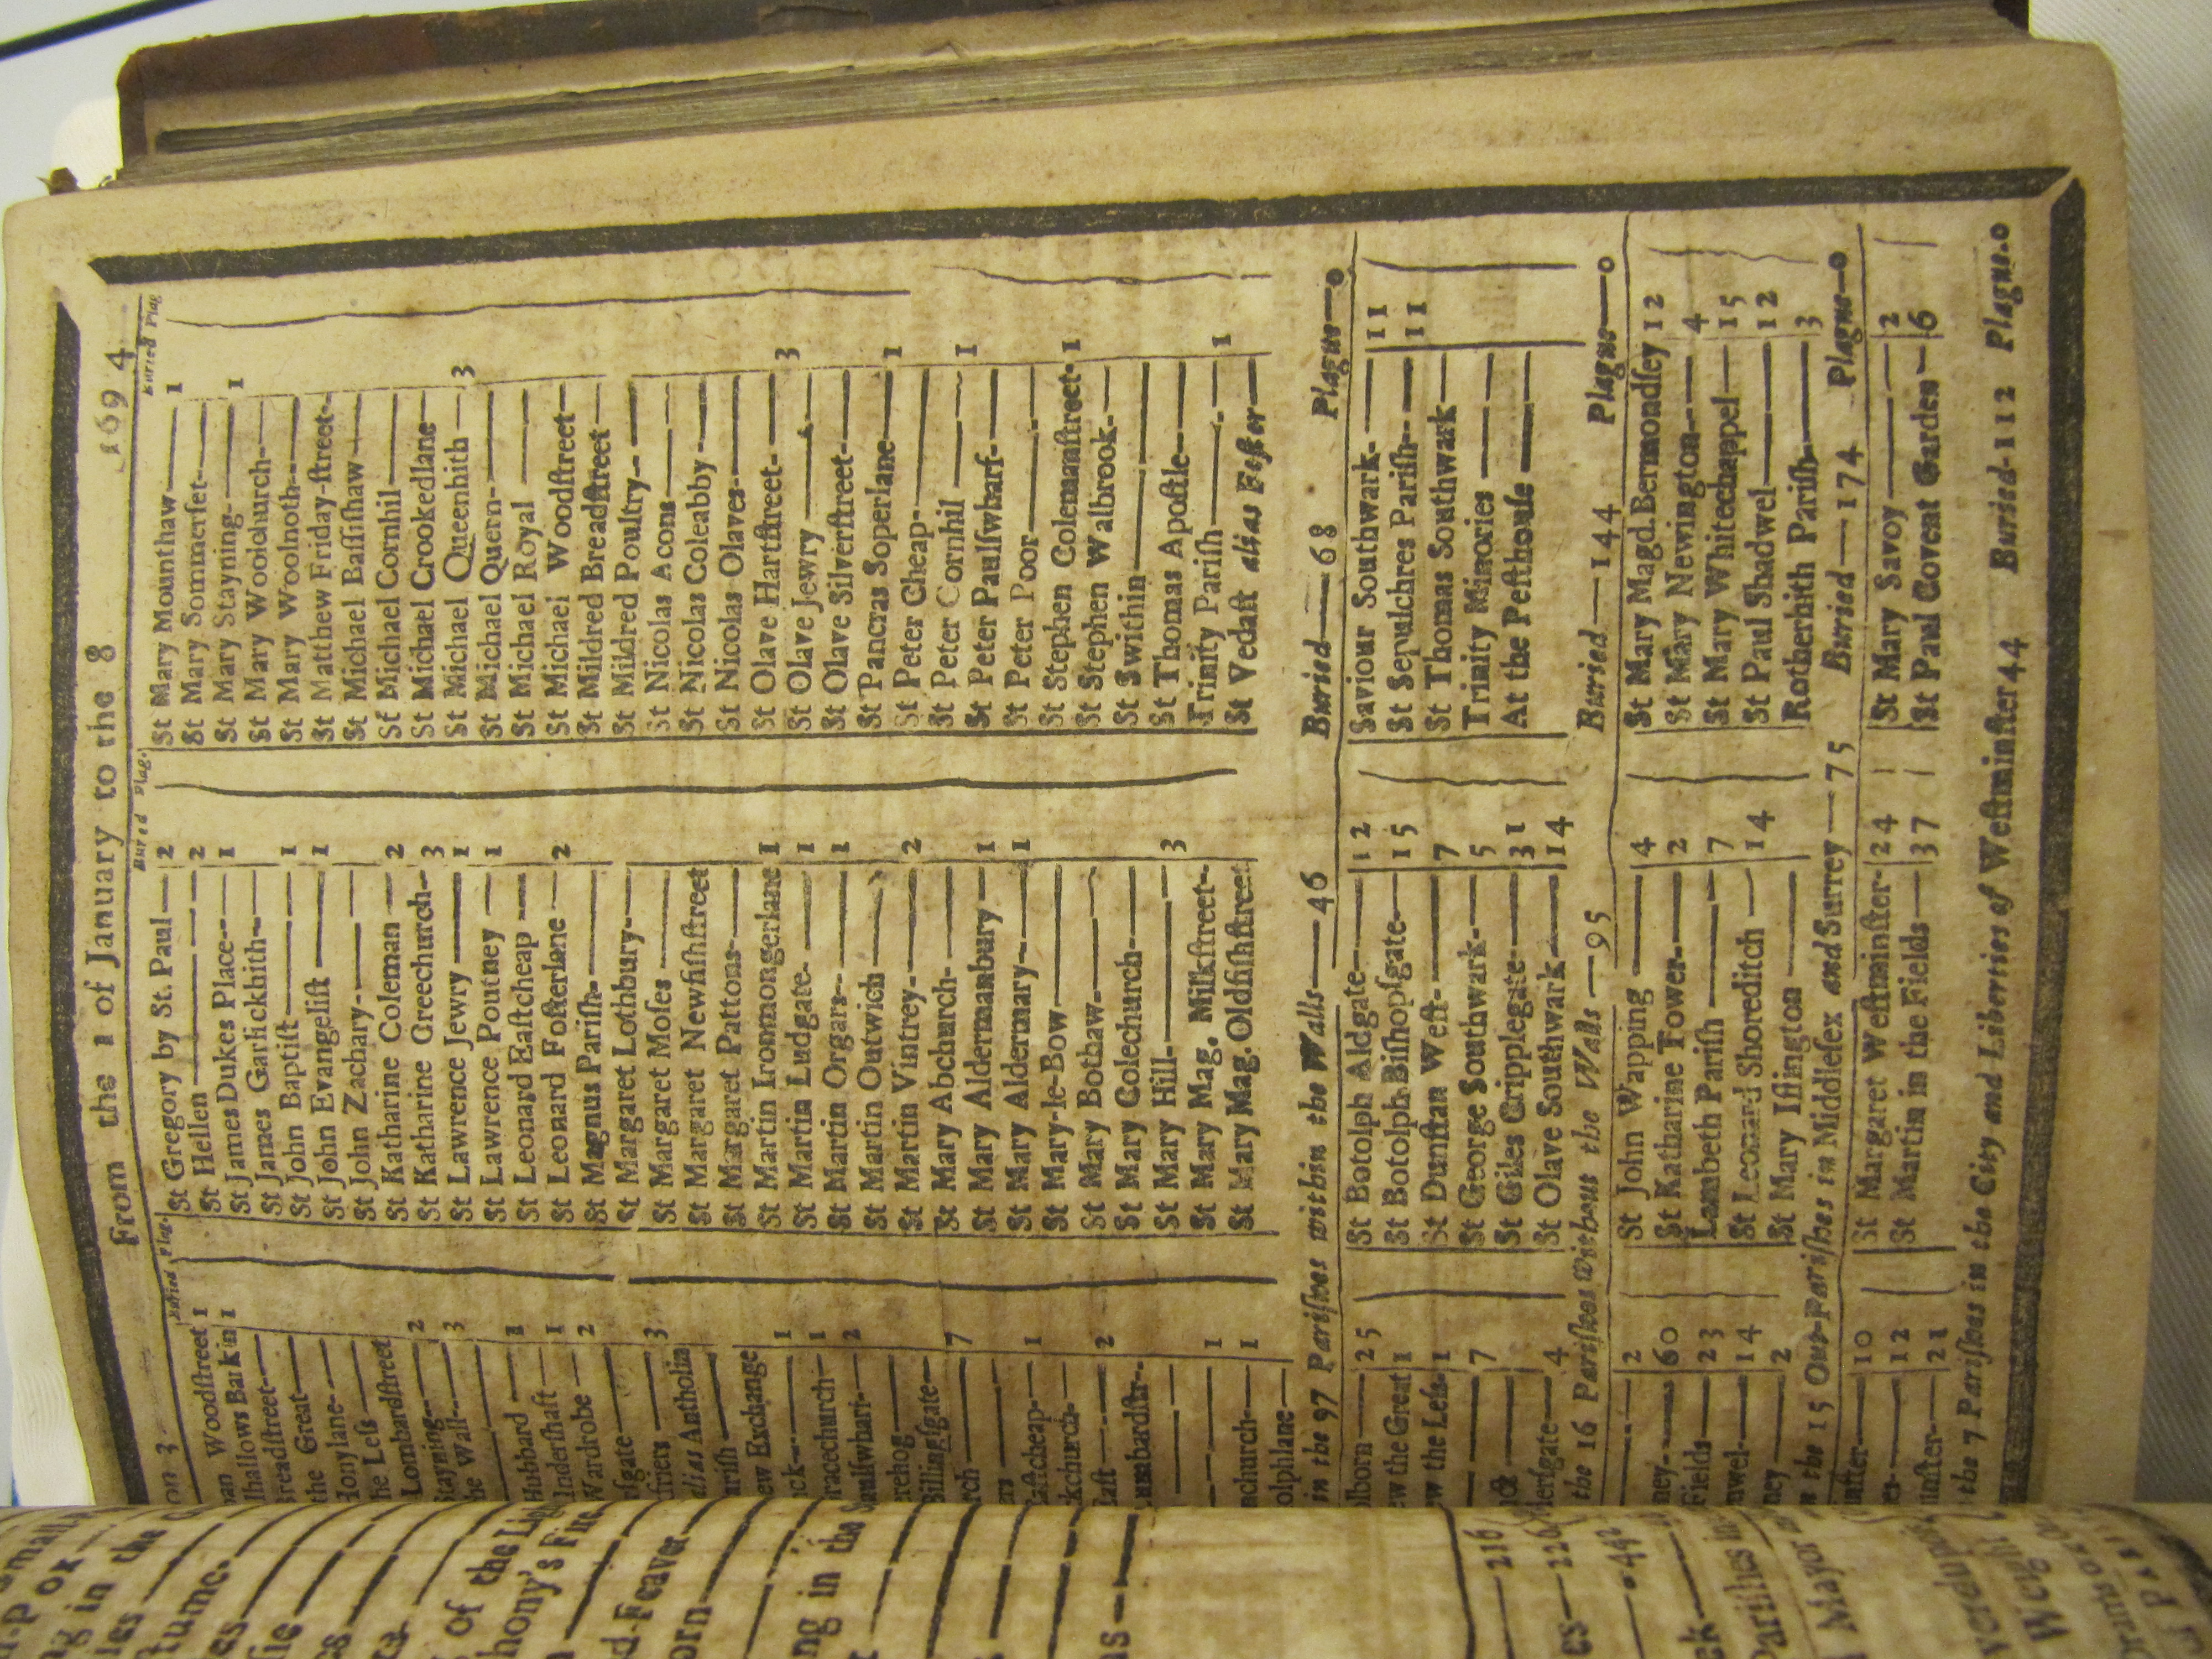 From the 1 of January to the 8 1694
Buried Plag.
Woodstreet 1
lhallows Barkin 1
Breadstreet
the Great
Honylane
he Leſs
Lombardſtreet
Stayning 2
he Wall 3
Hubbard 1
Underſhaft 1
Wardrobe 2
rſgate
friers 3
alias Antholin
ariſh
ew Exchange
ck 1
racechurch 1
aulſwharf 2
erehog
Billingſgate
rch 7
Eaſtcheap 1
kchurch
Eaſt 2
umbardſtr.
1
nchurch 1
olphlane
Buried Plag.
St Gregory by St. Paul 2
St Hellen 2
St James Dukes Place 1
St James Garlickhith
St John Baptiſt 1
St John Evangeliſt 1
St John Zachary
St Katharine Coleman 2
St Katharine Greechurch 3
St Lawrence Jewry 1
St Lawrence Poutney 1
St Leonard Eaſtcheap
St Leonard Foſterlane 2
St Magnus Pariſh
St Margaret Lothbury
St Margaret Moſes
St Margaret Newfiſhſtreet
St Margaret Pattons
St Martin Ironmongerlane 1
St Martin Ludgate 1
St Martin Orgars 1
St Martin Outwich
St Martin Vintrey 2
St Mary Abchurch
St Mary Aldermanbury 1
St Mary Aldermary 1
St Mary-le-Bow
St Mary Bothaw
St Mary Colechurch
St Mary Hill 3
St Mary Mag. Milkſtreet
St Mary Mag. Oldfiſhſtreet
Buried Plag
St Mary Mounthaw 1
St Mary Sommerſet
St Mary Stayning 1
St Mary Woolchurch
St Mary Woolnoth
St Matthew Friday-ſtreet
St Michael Baſſiſhaw
St Michael Cornhil
St Michael Crookedlane
St Michael Queenhith 3
St Michael Quern
St Michael Royal
St Michael Woodſtreet
St Mildred Breadſtreet
St Mildred Poultry
St Nicolas Acons
St Nicolas Coleabby
St Nicolas Olaves
St Olave Hartſtreet
St Olave Jewry 3
St Olave Silverſtreet
St Pancras Soperlane
St Peter Cheap 1
St Peter Cornhil
St Peter Paulſwharf 1
St Peter Poor
St Stephen Colemanſtreet 1
St Stephen Walbrook
St Swithin
St Thomas Apoſtle
Trinity Pariſh 1
St Vedaſt alias Foſter
in the 97 Pariſhes within the Walls 46 Buried 68 Plague 0
lborn 25
ew the Great 1
ew the Leſs 1
7
derſgate 4
St Botolph Aldgate 12
St Botolph Biſhopſgate 15
St Dunſtan Weſt 7
St George Southwark 5
St Giles Cripplegate 31
St Olave Southwark 14
Saviour Southwark 11
St Sepulchres Pariſh 11
St Thomas Southwark
Trinity Minories
At the Peſthouſe
the 16 Pariſhes without the Walls 95 Buried 144 Plague 0
2
ney 60
Fields 23
nwel 14
ney 2
St John Wapping 4
St Katharine Tower 2
Lambeth Pariſh 7
St Leonard Shoreditch 14
St Mary Iſlington
St Mary Magd. Bermondſey 12
St Mary Newington 4
St Mary Whitechappel 15
St Paul Shadwel 12
Rotherhith Pariſh 3
the 15 Out-Pariſhes in Middleſex and Surrey 75 Buried 174 Plague 0
inſter 10
12
inſter 21
St Margaret Weſtminſter 24
St Martin in the Fields 37
St Mary Savoy 2
St Paul Covent Garden 6
the 7 Pariſhes in the City and Liberties of Weſtminſter 44 Buried 112 Plague 0
ng in the
tume
of the Li
hony's Fire
d-Feaver
orn
ng in the
216
226
442
Pariſhes in
Mayor